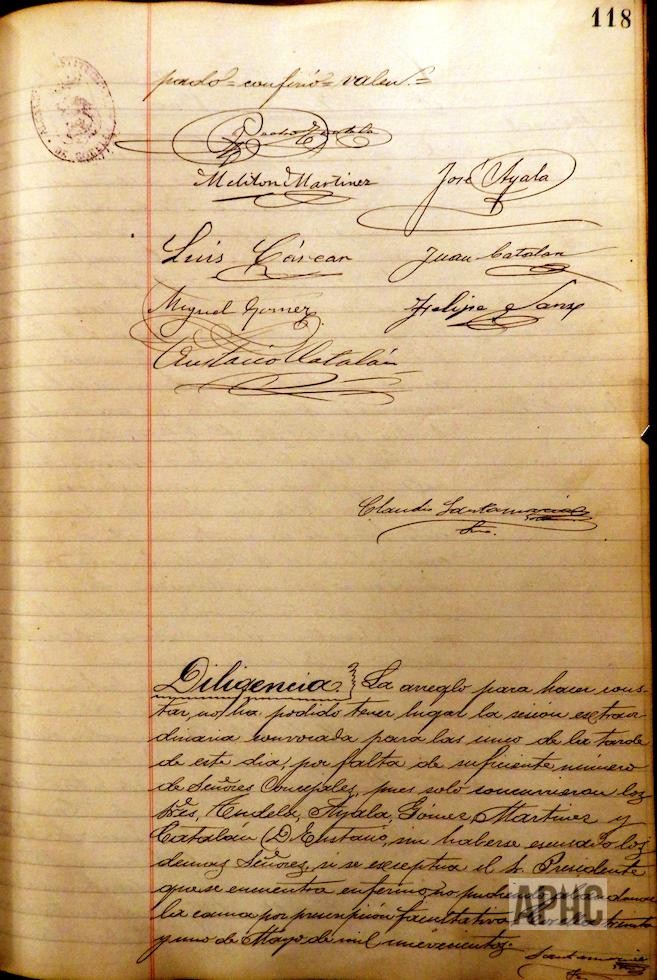 118
pado= confirió= valen.=
Meliton Martinez José Ayala
Luis Cóscan Juan Catalan
Miguel Gomez Felipe Sanz
Eustasio Catalán
Claudio Santamaria
Srio.
Diligencia La arreglo para hacer cons-
tar, no ha podido tener lugar la sesión extraor
dinaria convocada para las once de la tarde
de este dia, por falta de suficiente número
de Señores Concejales, pues solo concurrieron los
Sres, Ayala, Gómez, Martinez y
Catalán (D. Eustasio, sin haberse escusado los
demas Señores, si se exceptua el Sr. Presidente
que se encuentra enfermo, no pudiendo abandonar
la cama por prescripción facultativa. treinta
y uno de Mayo de mil novecientos.
Santamaria
APHC